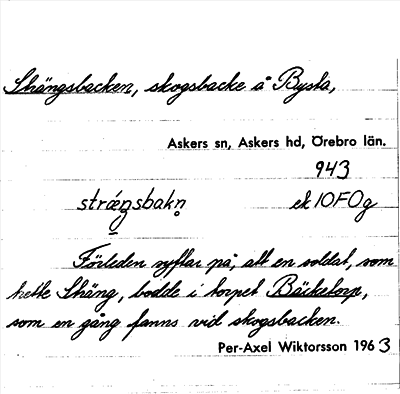 Strängsbacken, skogsbacke å Bysta,
Askers sn, Askers hd, Örebro län.
943
stráŋsbakn̥ ek 10F0g
Förleden syftar på, att en soldat, som
hette Sträng, bodde i torpet Bäcketorp,
som en gång fanns vid skogsbacken.
Per-Axel Wiktorsson 1963